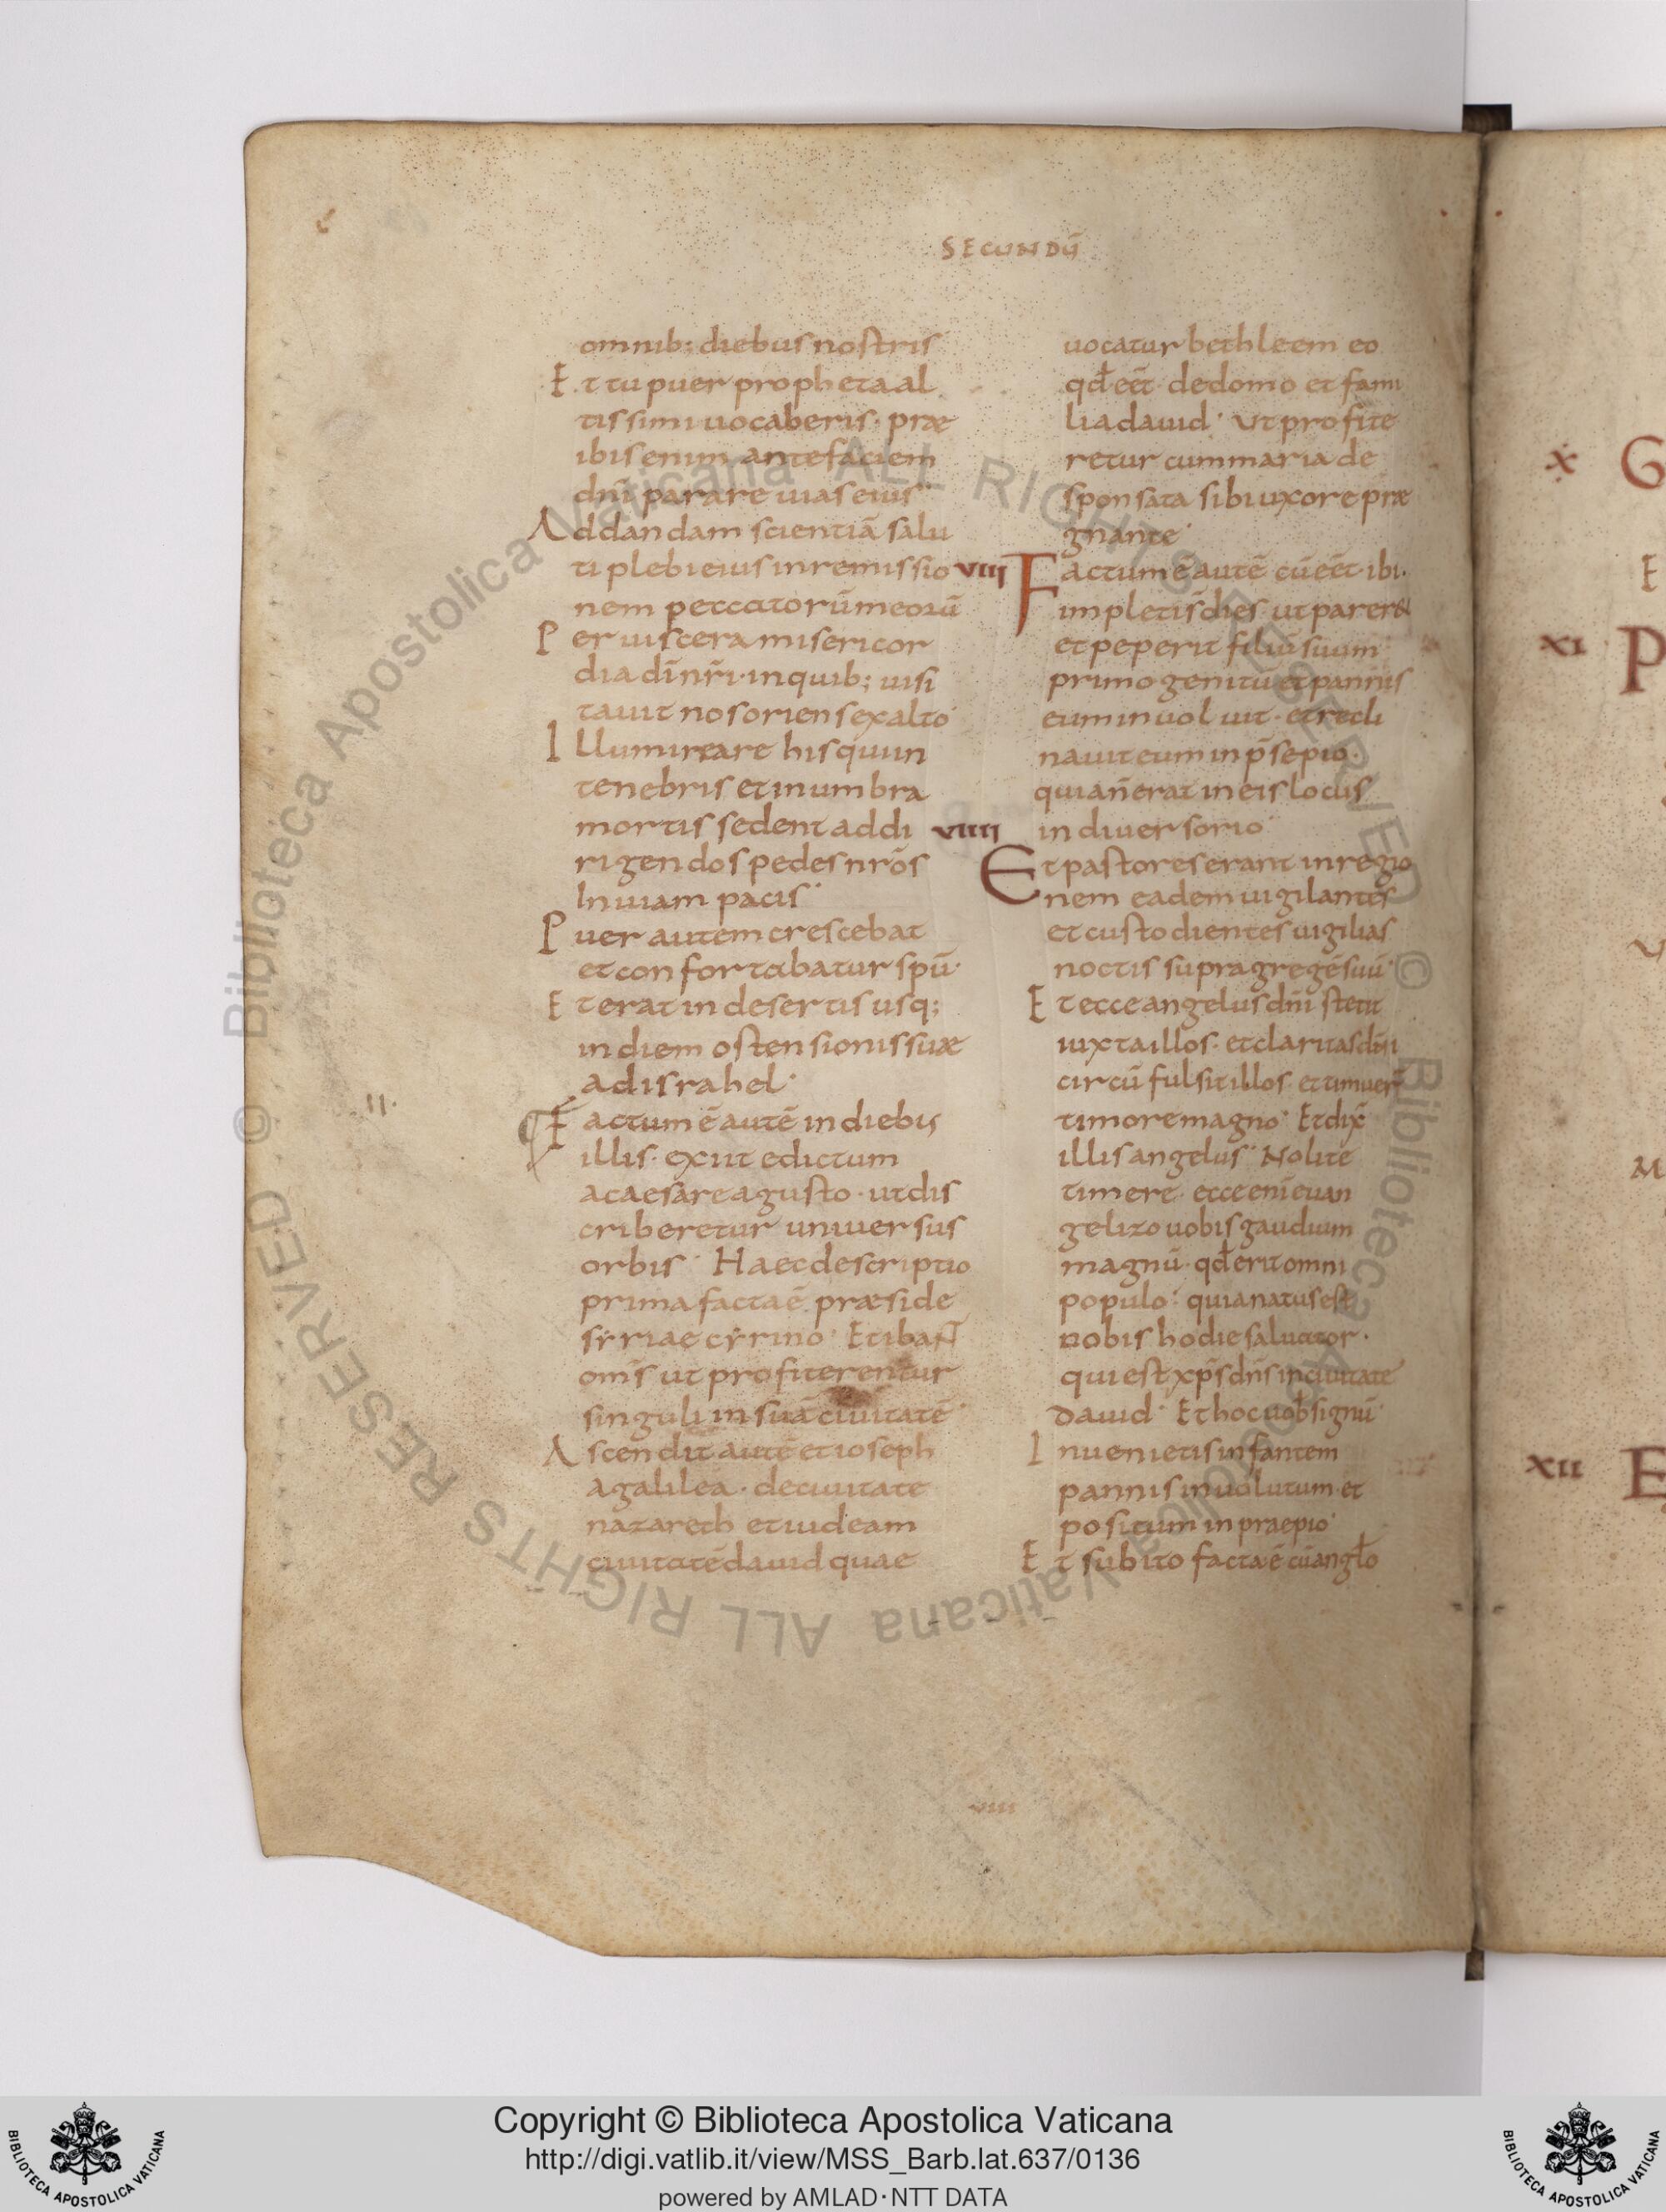 SECUNDŪ
omnib; diebus nostris
Et tu puer propheta al
tissimi uocaberis· præ
ibis enim ante faciem
dnī parare uias eius·
Ad dandam scientiā salu
ti plebi eius in remissio
nem peccatorū meorū
Per uiscera misericor
dia dī nr̄i· in quib; uisi
tauit nos oriens exalto·
Illuminare his qui in
tenebris et in umbra
mortis sedent ad di
rigendos pedes nrōs
In uiam pacis·
Puer autem crescebat
et confortabatur spū·
Et erat in desertis usq;
in diem ostensionis suæ
ad israhel·
II·
Factum ē autē in diebus
illis· exiit edictum
a caesare agusto· ut dis
criberetur uniuersus
orbis· Haec descriptio
prima facta ē præside
sẏriae cẏrino· Et ibant
omīs ut profiterentur
singuli in suā ciuitatē·
Ascendit autē et ioseph
a galilea· de ciuitate
nazareth et iudeam
ciuitatē dauid quae
uocatur bethleem eo
qđ eēt· de domo et fami
lia dauid· Ut profite
retur cum maria de
sponsata sibi uxore præ
gnante·
VIII
Factum ē autē cū eēt· ibi·
impleti s̄ dies ut parer&
et peperit filiū suum
primogenitū et pannis
eum inuoluit· et recli
nauit eum in p̄sepio·
quia n̄ erat in eis locus
VIIII
in diuersorio·
Et pastores erant in regio
nem eadem uigilantes
et custodientes uigilias
noctis supra gregē suū·
Et ecce angelus dnī stetit
iuxta illos· et claritas dnī
circū fulsit illos· et timuer̄
timore magno· Et dix̄
illis angelus· Nolite
timere· ecce enī euan
gelizo uobis gaudium
magnū· qđ erit omni
populo· quia natus est
uobis hodie saluator·
qui est xp̄s dn̄s in ciuitate
Dauid· Et hoc uob̄ signū·
Inuenietis infantem
pannis inuolutum· et
positum in praepio·
Et subito facta ē cū angło
VIII
X
G
E
XI
P
M
XII
E
© Biblioteca Apostolica Vaticana ALL RIGHTS RESERVED © Biblioteca Apostolica Vaticana ALL RIGHTS RESERVED
BIBLIOTECA APOSTOLICA VATICANA
Copyright © Biblioteca Apostolica Vaticana
http://digi.vatlib.it/view/MSS_Barb.lat.637/0136
powered by AMLAD·NTT DATA
BIBLIOTECA APOSTOLICA VATICANA